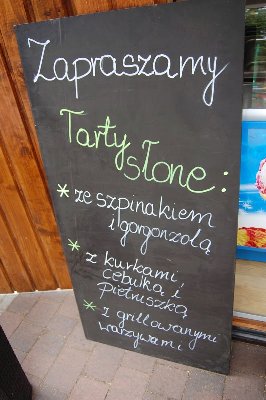 Zapraszamy
Tarty
słone:
* ze szpinakiem
i gorgonzolą
* z kurkami,
cebulką i
pietruszką
* z grillowanymi
warzywami